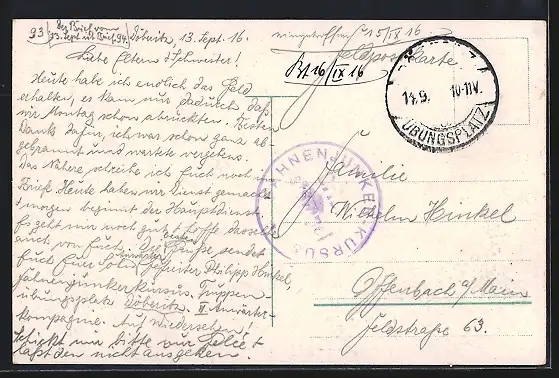 93 Der Brief vom
13. Sept. ist Brief 94. Döberitz, 13. Sept. 16.
Liebe Eltern & Schwester!
Heute habe ich endlich das Geld
erhalten, es kam nur dadurch daß
wir Montag schon abrückten. Besten
Dank dafür, ich war schon ganz ab
gebrannt und wartete vergebens.
Das Nähere schreibe ich Euch noch im
Briefe. Heute haben wir Dienst gemacht
morgen beginnt der Hauptdienst
Es geht mir noch gut & hoffe dasselbe
auch von Euch. Grüße sendet
Euch Euer Sohn Gefreiter Philipp Hinkel,
Fahnenjunkerkursus. Truppen
übungsplatz Döberitz. II. Anwärter-
kompagnie. Auf Wiedersehen!
Schickt mir bitte nur Geld &
laßt den nicht ausgehen.
eingetroffen 15/IX 16
Feldpostkarte
Bt 16/IX 16
14.9. 10-11V.
ÜBUNGSPLATZ
FAHNENJUNKER-KURSUS
Familie
Wilhelm Hinkel
Offenbach a/Main
Feldstraße 63.